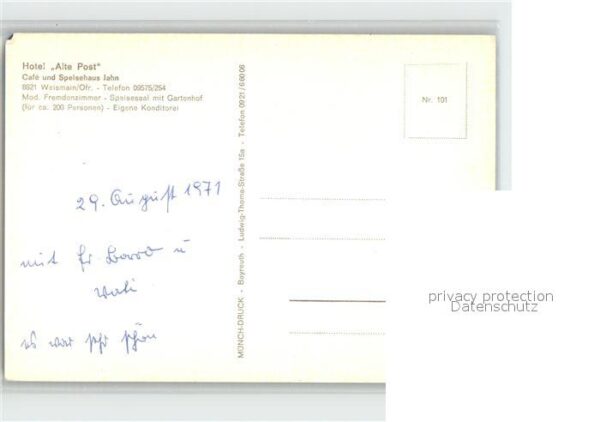 Hotel „Alte Post"
Café und Speisehaus Jahn
8621 Weismain/Ofr. - Telefon 09575/254
Mod. Fremdenzimmer - Speisesaal mit Gartenhof
(für ca. 200 Personen) - Eigene Konditorei
29. August 1971
mit Fr. u
es war sehr schön
MÜNCH-DRUCK - Bayreuth - Ludwig-Thoma-Straße 15a - Telefon 0921/66006
Nr. 101
privacy protection
Datenschutz